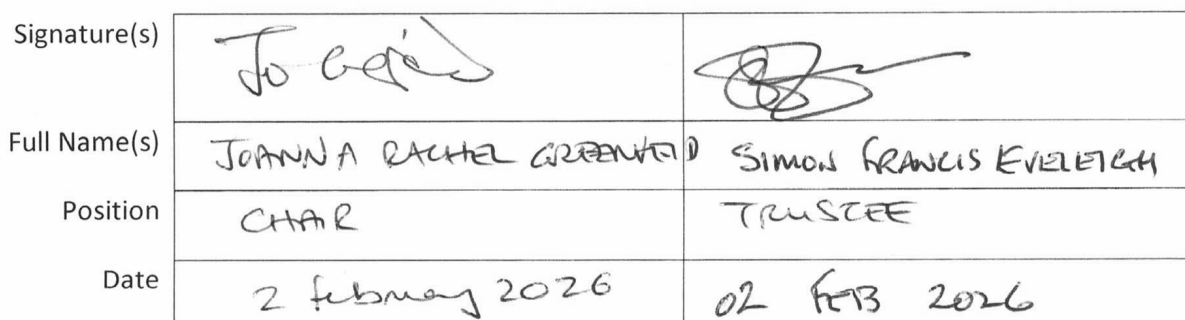 Signature(s)
Full Name(s) JOANNA RACHEL GREENFIELD SIMON FRANCIS EVELEIGH
Position CHAIR TRUSTEE
Date 2 february 2026 02 FEB 2026